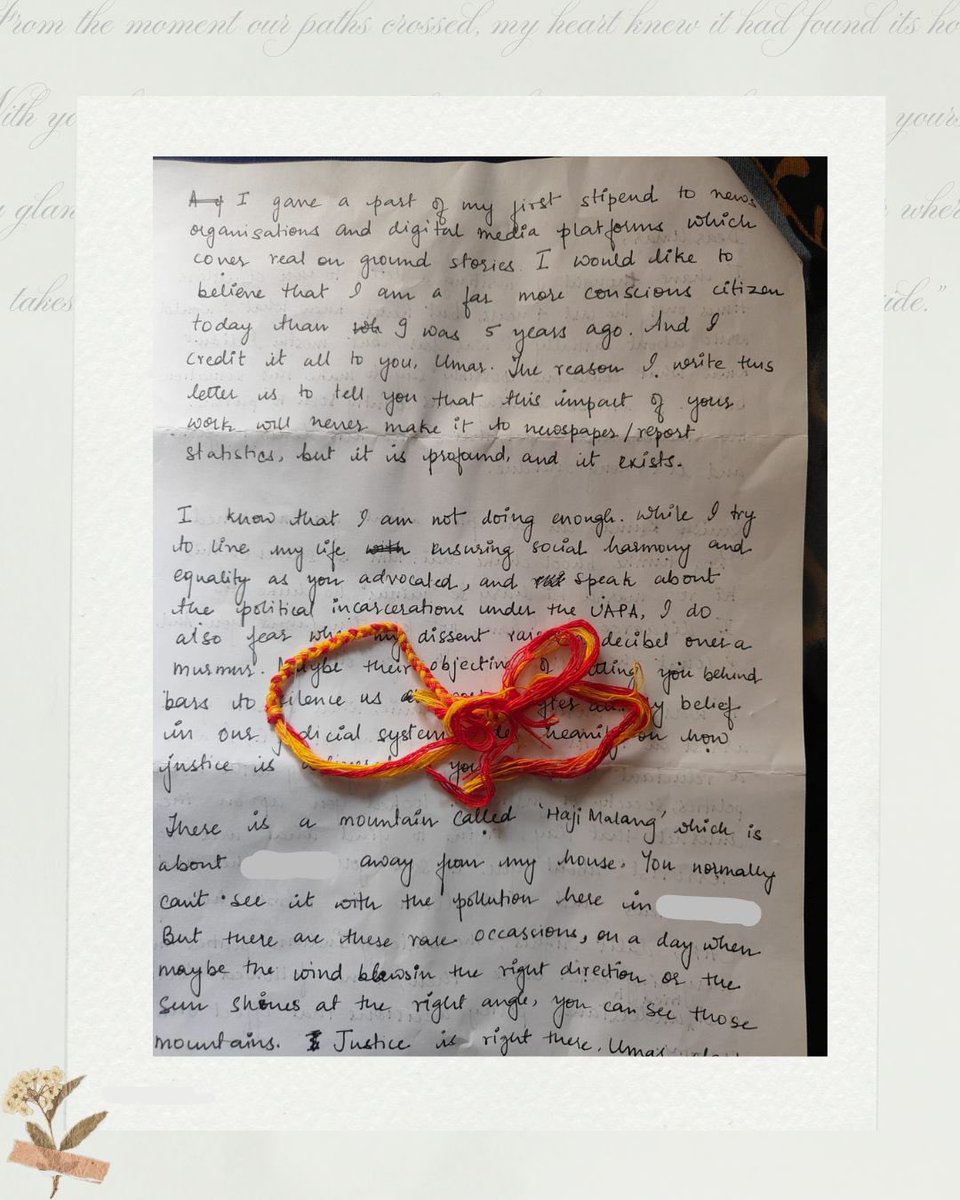 From the moment our paths crossed, my heart knew it had found its
I gave a part of my first stipend to news
organisations and digital media platforms, which
cover real on ground stories. I would like to
believe that I am a far more conscious citizen
today than I was 5 years ago. And I
credit it all to you, Umar. The reason I write this
letter is to tell you that this impact of your
work will never make it to newspaper/report
statistics, but it is profound, and it exists.
I know that I am not doing enough. While I try
to live my life ensuring social harmony and
equality as you advocated, and speak about
the political incarcerations under the UAPA, I do
also fear my dissent decibel over a
murmur. Maybe their objective of you behind
bars to silence us belief
in our judicial system heavily on how
justice is you
There is a mountain called 'Haji Malang' which is
about away from my house. You normally
can't see it with the pollution here in
But there are these rare occassions, on a day when
maybe the wind blows in the right direction or the
sun shines at the right angle, you can see those
mountains. Justice is right there, Umar
takes